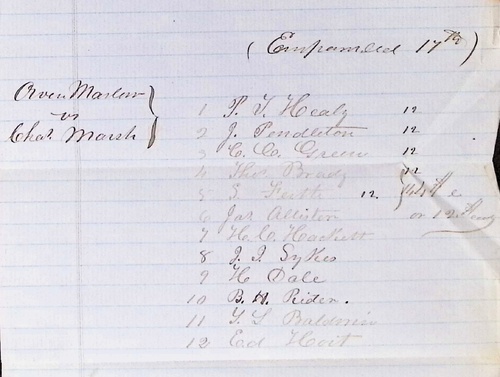 (Empanneled 17th)
Owen Marlow
vs
Chas. Marsh
1 P. T. Healy 12
2 J. Pendleton 12
3 C. C. Green 12
4 Thos Brady 12
5 S. 12.
6 Jas Alliston or 12
7 H. C. Hackett
8 J. J. Sykes
9 H Dale
10 B. H. Riden.
11 T. S Baldwin
12 Ed Hoit